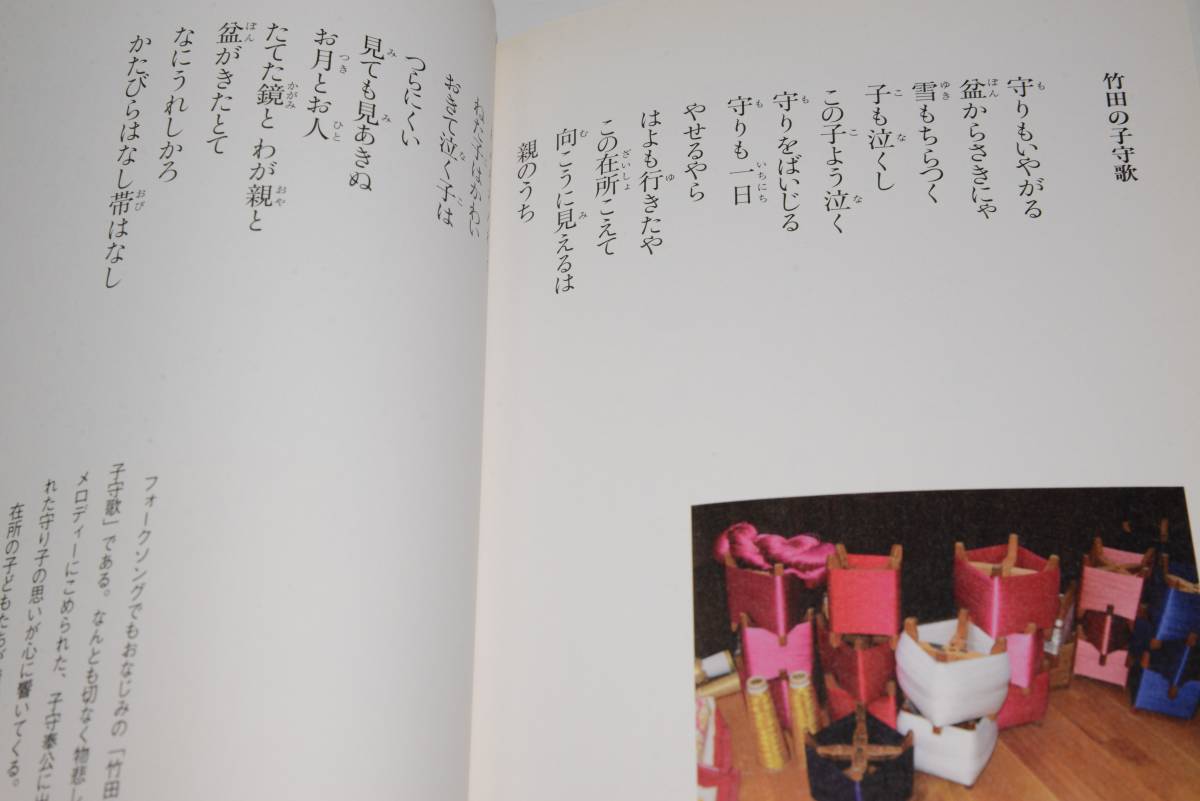 竹田の子守歌
守りもいやがる
盆からさきにゃ
雪もちらつく
子も泣くし
この子よう泣く
守りをばいじる
守りも一日
やせるやら
はよも行きたや
この在所こえて
向こうに見えるは
親のうち
ねた子はかわい
おきて泣く子は
つらにくい
見ても見あきぬ
お月とお人
たてた鏡と わが親と
盆がきたとて
なにうれしかろ
かたびらはなし 帯はなし
フォークソングでもおなじみの「竹田
子守歌」である。なんとも切なく物悲し
メロディーにこめられた、子守奉公に出
れた守り子の思いが心に響いてくる。
在所の子どもたちが